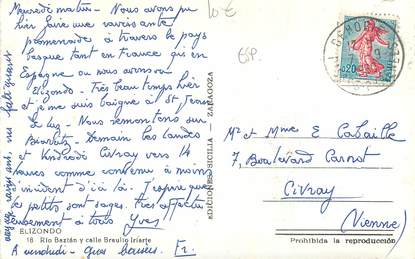 Mercredi matin - Nous avons pu
hier faire une ravissante
promenade à travers le pays
basque tant en France qui en
Espagne où nous avons vu
Elizondo - Très beau temps hier
et je me suis baigné à St Jean
de Luz - Nous remontons sur
Biarritz - Demain les Landes
et vendredi Civray vers 14
heures comme convenu à moins
d'incident d'ici là. J'espère que
les petits sont sages. Très affectu
eusement à tous Yves
ELIZONDO
16 Río Baztán y calle Braulio Iriarte
A vendredi - Gros baisers
10 €
ESP.
EDICIONES SICILIA - ZARAGOZA
0,20
Mr et Mme E Cabaille
7, Boulevard Carnot
Civray
(Vienne)
Prohibida la reproducción